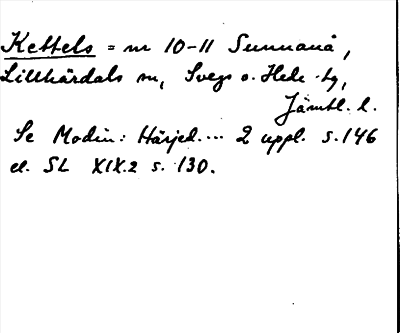 Kettels = nr 10-11 Sunnanå,
Lillhärdals sn, Svegs o. Hede tg,
Jämtl. l.
Se Modin: Härjed.... 2 uppl. s. 146
el. SL XIX.2 s. 130.